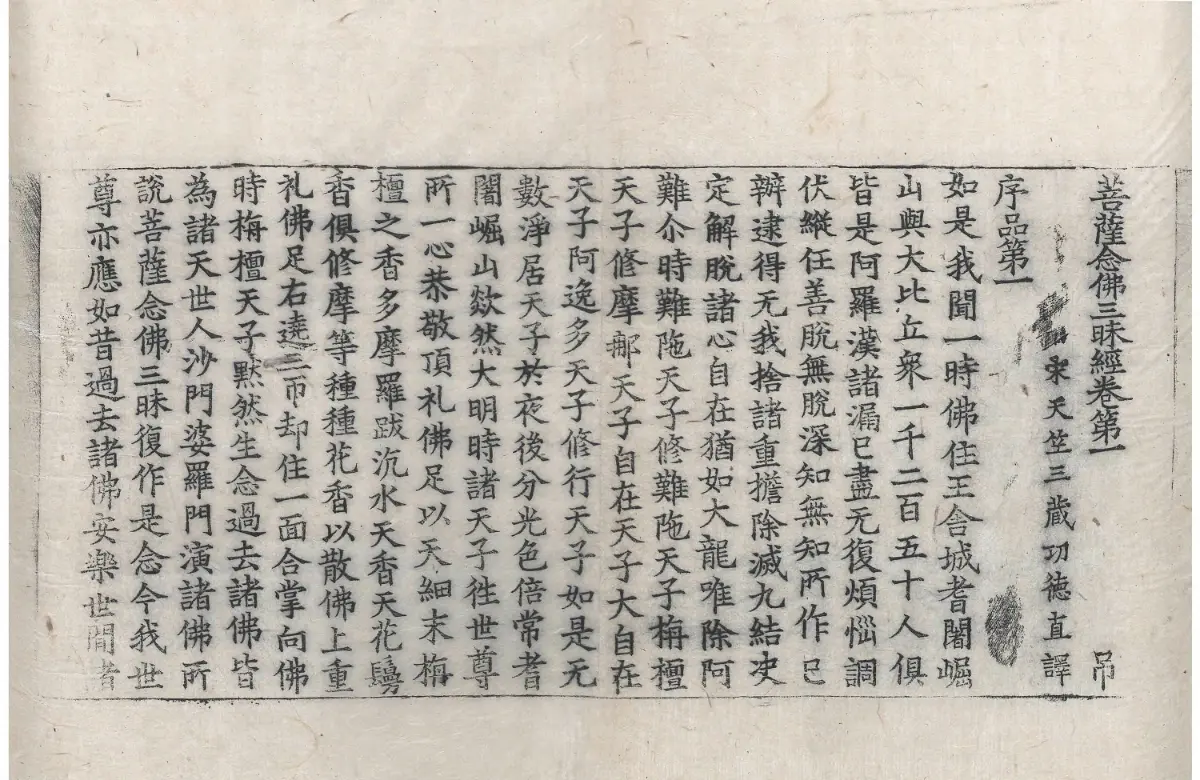 菩薩念佛三昧經卷第一 吊
宋天竺三藏功德直譯
序品第一
如是我聞一時佛住王舍城耆闍崛
山與大比丘衆一千二百五十人俱
皆是阿羅漢諸漏已盡无復煩惱調
伏縱任善脫無脫深知無知所作已
辦逮得无我捨諸重擔除滅九結決
定解脫諸心自在猶如大龍唯除阿
難尒時難陁天子修難陁天子栴檀
天子修摩那天子自在天子大自在
天子阿逸多天子修行天子如是无
數淨居天子於夜後分光色倍常耆
闍崛山欻然大明時諸天子徃世尊
所一心恭敬頂礼佛足以天細末栴
檀之香多摩羅跋沉水天香天花鬘
香俱修摩等種種花香以散佛上重
礼佛足右遶三帀却住一面合掌向佛
時栴檀天子默然生念過去諸佛皆
為諸天世人沙門婆羅門演諸佛所
說菩薩念佛三昧復作是念今我世
尊亦應如昔過去諸佛安樂世間者